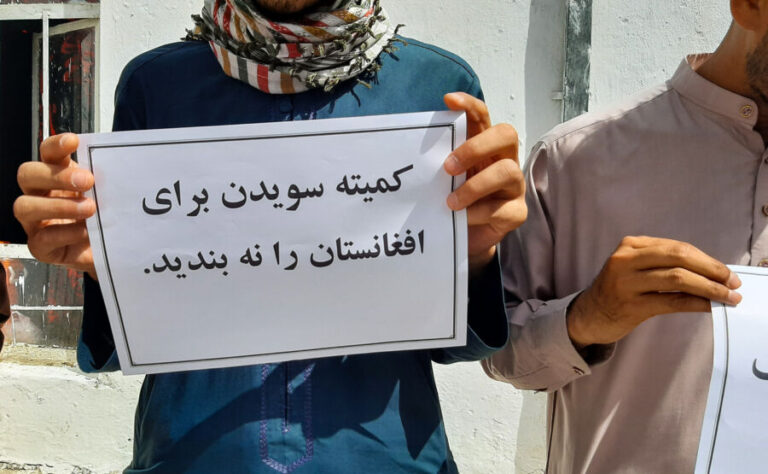 کمیته سویدن برای
افغانستان را نه بندید.